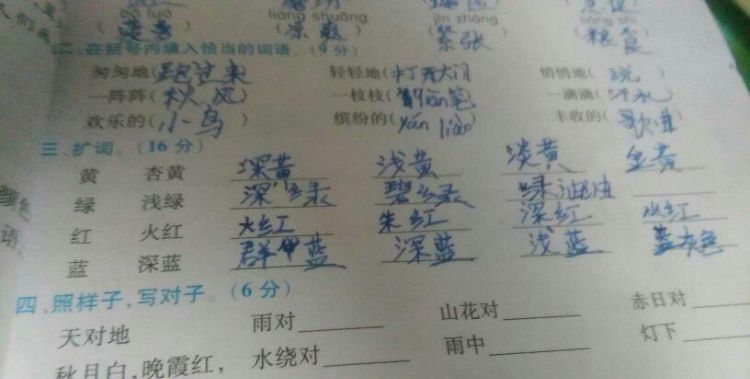 liáng shuāng jǐn zhāng liáng shi
(凉爽) (紧张) (粮食)
二、在括号内填入恰当的词语。(9分)
匆匆地(跑过来) 轻轻地(打开大门) 悄悄地(说)
一阵阵(秋风) 一枝枝(铅笔) 一滴滴(汗水)
欢乐的(小鸟) 缤纷的(yán liào) 丰收的(歌)
三、扩词。(16分)
黄 杏黄 深黄 浅黄 淡黄 金黄
绿 浅绿 深绿 碧绿 绿油油
红 火红 大红 朱红 深红 水红
蓝 深蓝 群蓝 深蓝 浅蓝 蓝灰色
四、照样子,写对子。(6分)
天对地 雨对______ 山花对______ 赤日对______
秋月白,晚霞红, 水绕对______ 雨中______ 灯下______